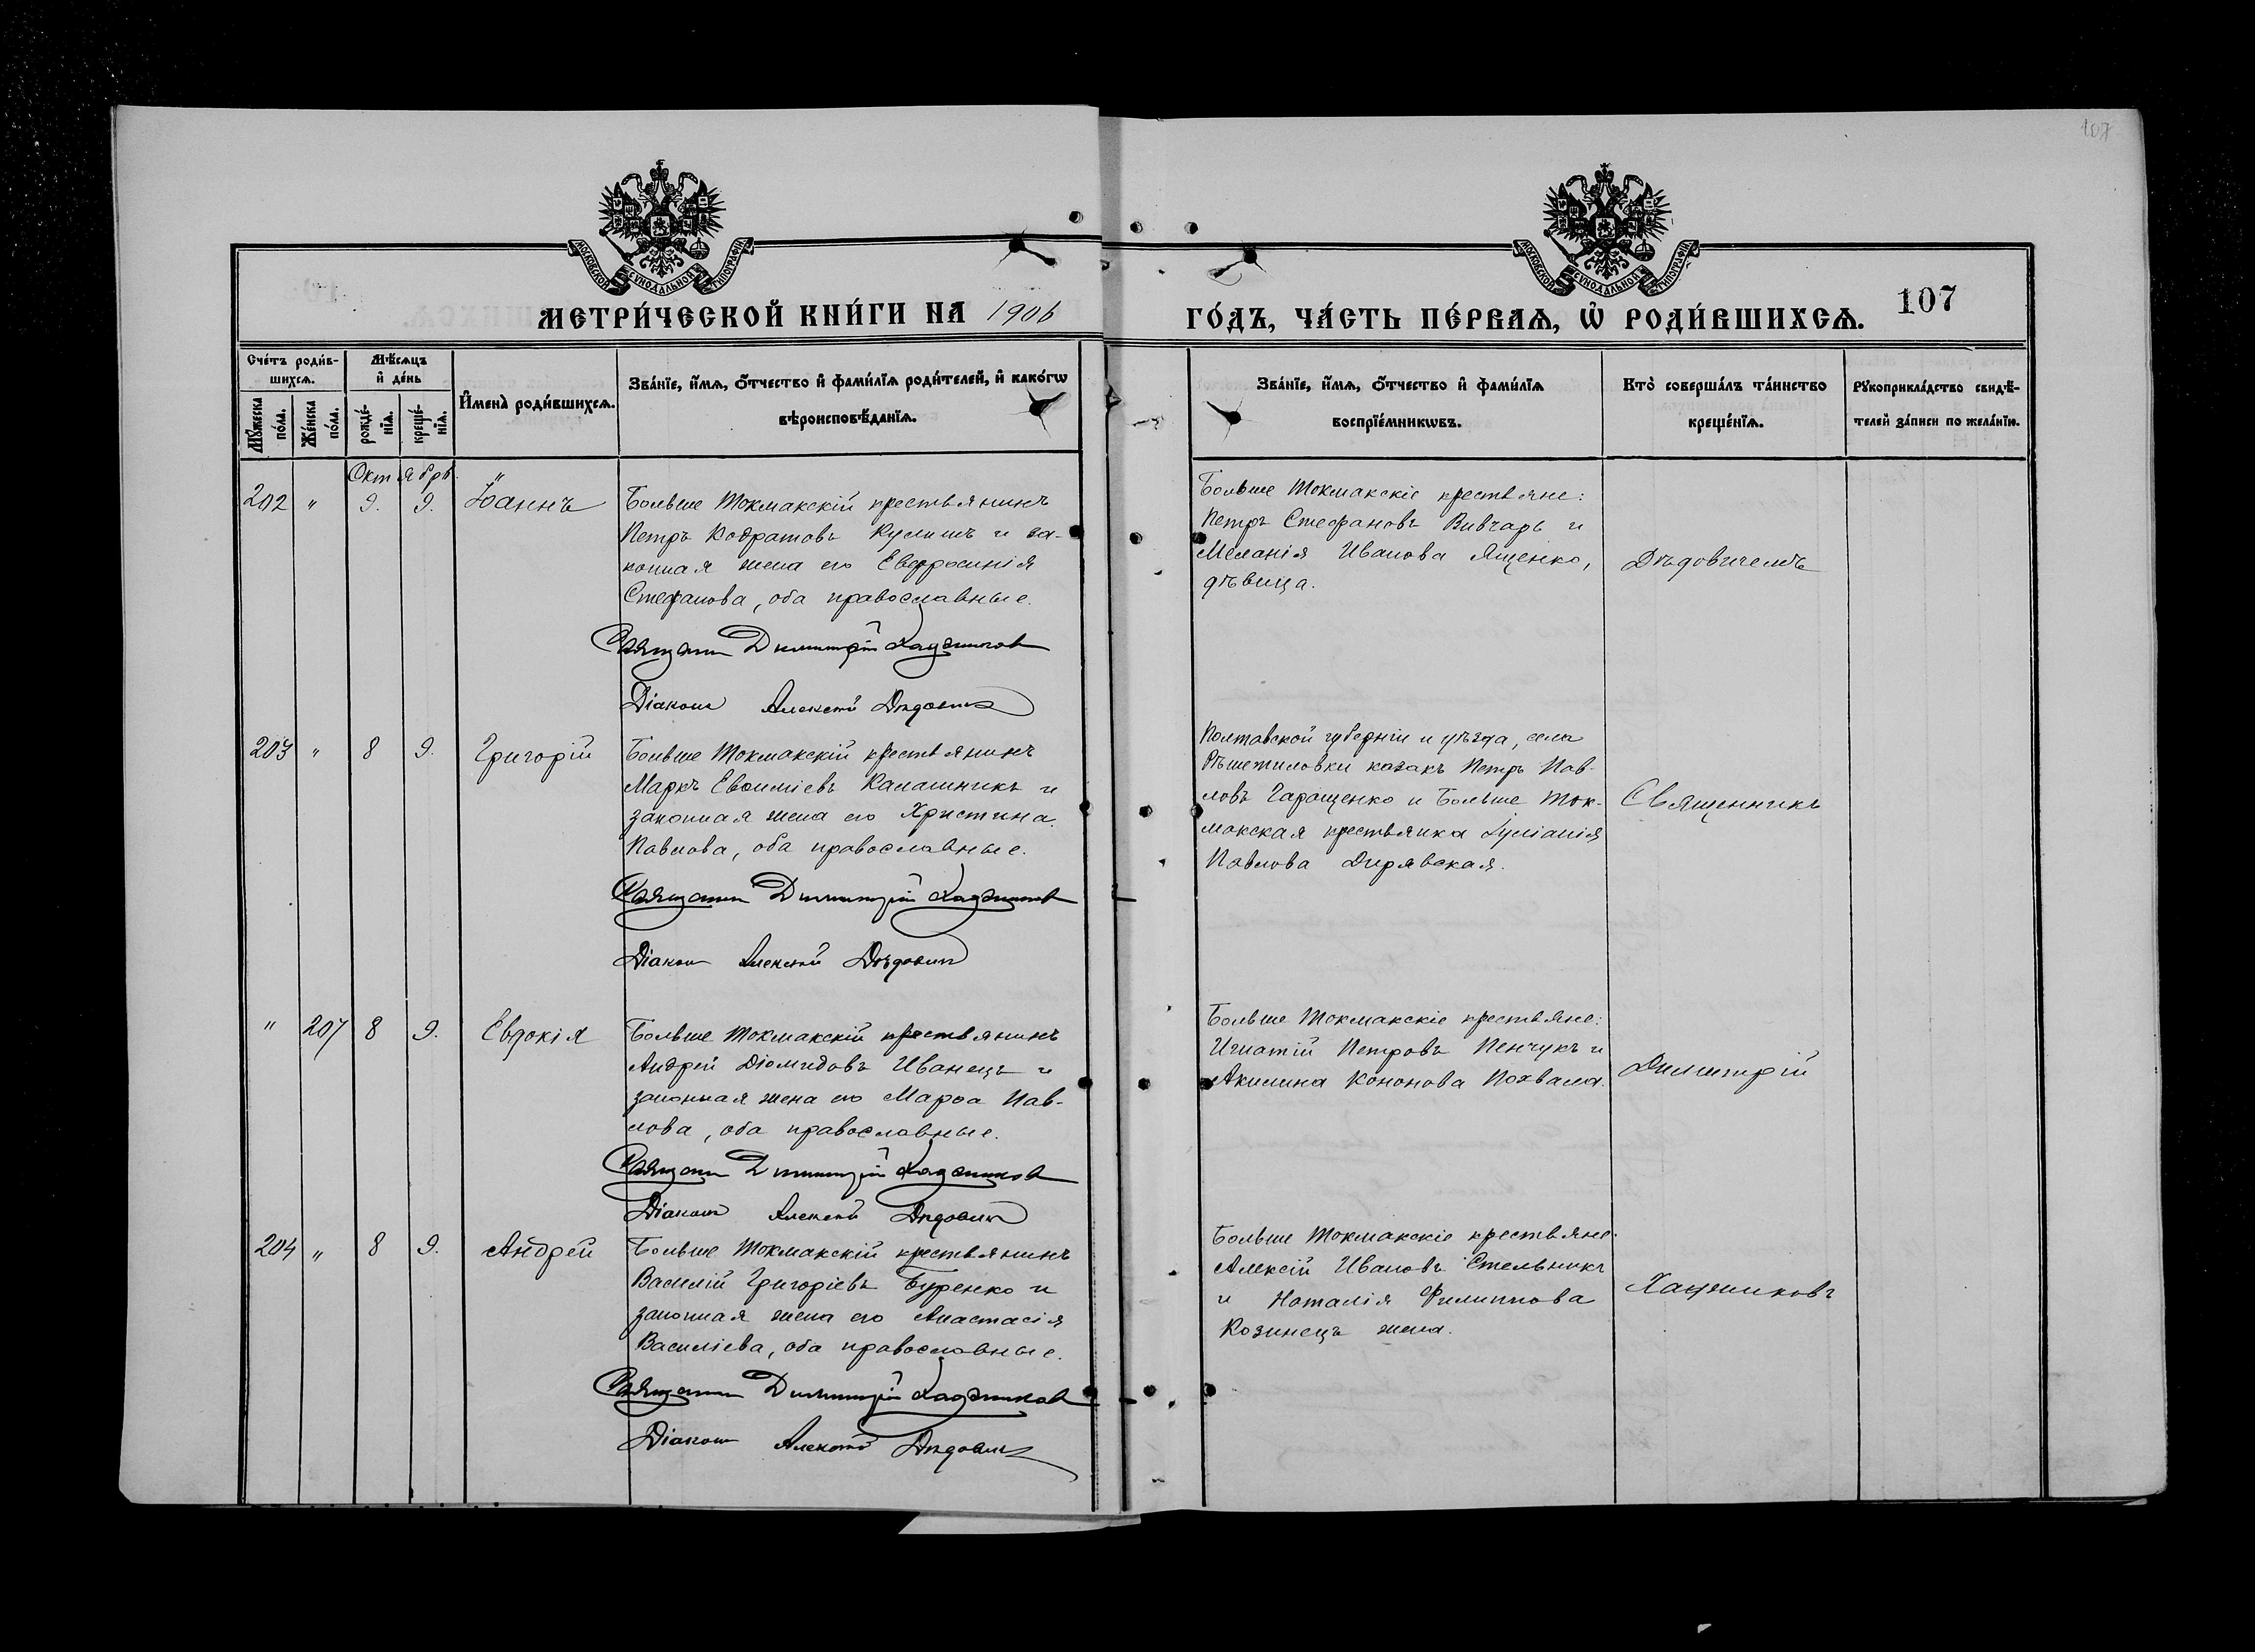 107
МОСКОВСКОЙ СѴНОДАЛЬНОЙ ТИПОГРАФІИ
МОСКОВСКОЙ СѴНОДАЛЬНОЙ ТИПОГРАФІИ
МЕТРИ́ЧЕСКОЙ КНИ́ГИ НА 1906
ГО́ДЪ, ЧА́СТЬ ПЕ́РВАѦ, Ѡ҆ РОДИ́ВШИХСѦ. 107
Сче́тъ роди́в-
шихсѧ.
Мꙋ́жеска
по́ла.
Же́нска
по́ла.
Мѣ́сѧцъ
и҆ де́нь
рожде́-
нїѧ.
креще́-
нїѧ.
И҆мена̀ роди́вшихсѧ.
Зва́нїе, и҆́мѧ, ѻ҆́тчество и҆ фами́лїѧ роди́телей, и҆ како́гѡ
вѣроисповѣ́данїѧ.
Зва́нїе, и҆́мѧ, ѻ҆́тчество и҆ фами́лїѧ
воспрїе́мникѡвъ.
Кто̀ соверша́лъ та́инство
креще́нїѧ.
Рꙋкоприкла́дство свидѣ́-
телей за́писи по жела́нїю.
Октябрь.
202 " 9. 9. Іоаннъ
Больше Токмакскій крестьянинъ
Петръ Кодратовъ Кулишъ и за-
конная жена его Евфросинія
Стефанова, оба православные.
Священник Димитрій Хаджинов
Діаконъ Алексѣй Дѣдович
Больше Токмакскіе крестьяне:
Петръ Стефановъ Вивчарь и
Меланія Иванова Ященко,
дѣвица.
Дѣдовичемъ
203 " 8 9. Григорій
Больше Токмакскій крестьянинъ
Маркъ Евѳиміевъ Калашникъ и
законная жена его Христина
Павлова, оба православные.
Священник Димитрій Хаджинов
Діакон Алексѣй Дѣдович
Полтавской губерніи и уѣзда, села
Рѣшетиловки казакъ Петръ Пав-
ловъ Гаращенко и Больше Ток-
макская крестьянка Іуліанія
Павлова Дирявская.
Священникъ
" 207 8 9. Евдокія
Больше Токмакскій крестьянинъ
Андрей Діомидовъ Иванецъ и
законная жена его Марѳа Пав-
лова, оба православные.
Священник Димитрій Хаджинов
Діаконъ Алексѣй Дѣдович
Больше Токмакскіе крестьяне:
Игнатій Петровъ Пенчукъ и
Акилина Кононова Похвала.
Димитрій
204 " 8 9. Андрей
Больше Токмакскій крестьянинъ
Василій Григоріевъ Буренко и
законная жена его Анастасія
Василіева, оба православные.
Священник Димитрій Хаджинов
Діаконъ Алексѣй Дѣдович
Больше Токмакскіе крестьяне:
Алексій Ивановъ Стельникъ
и Наталія Филиппова
Козинецъ жена.
Хаджиновъ